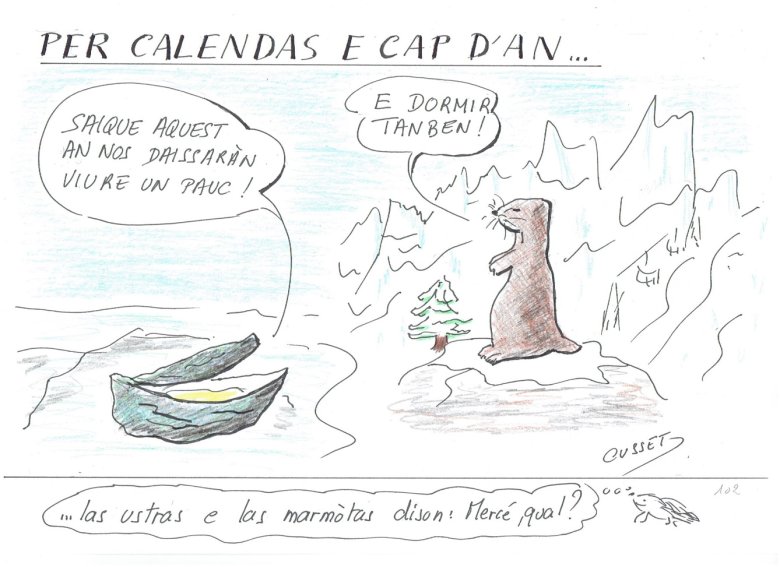 PER CALENDAS E CAP D'AN...
SAIQUE AQUEST
AN NOS DAISSARÀN
VIURE UN PAUC !
E DORMIR
TANBEN !
CUSSET
...las ustras e las marmòtas dison : Mercé qual ?
102